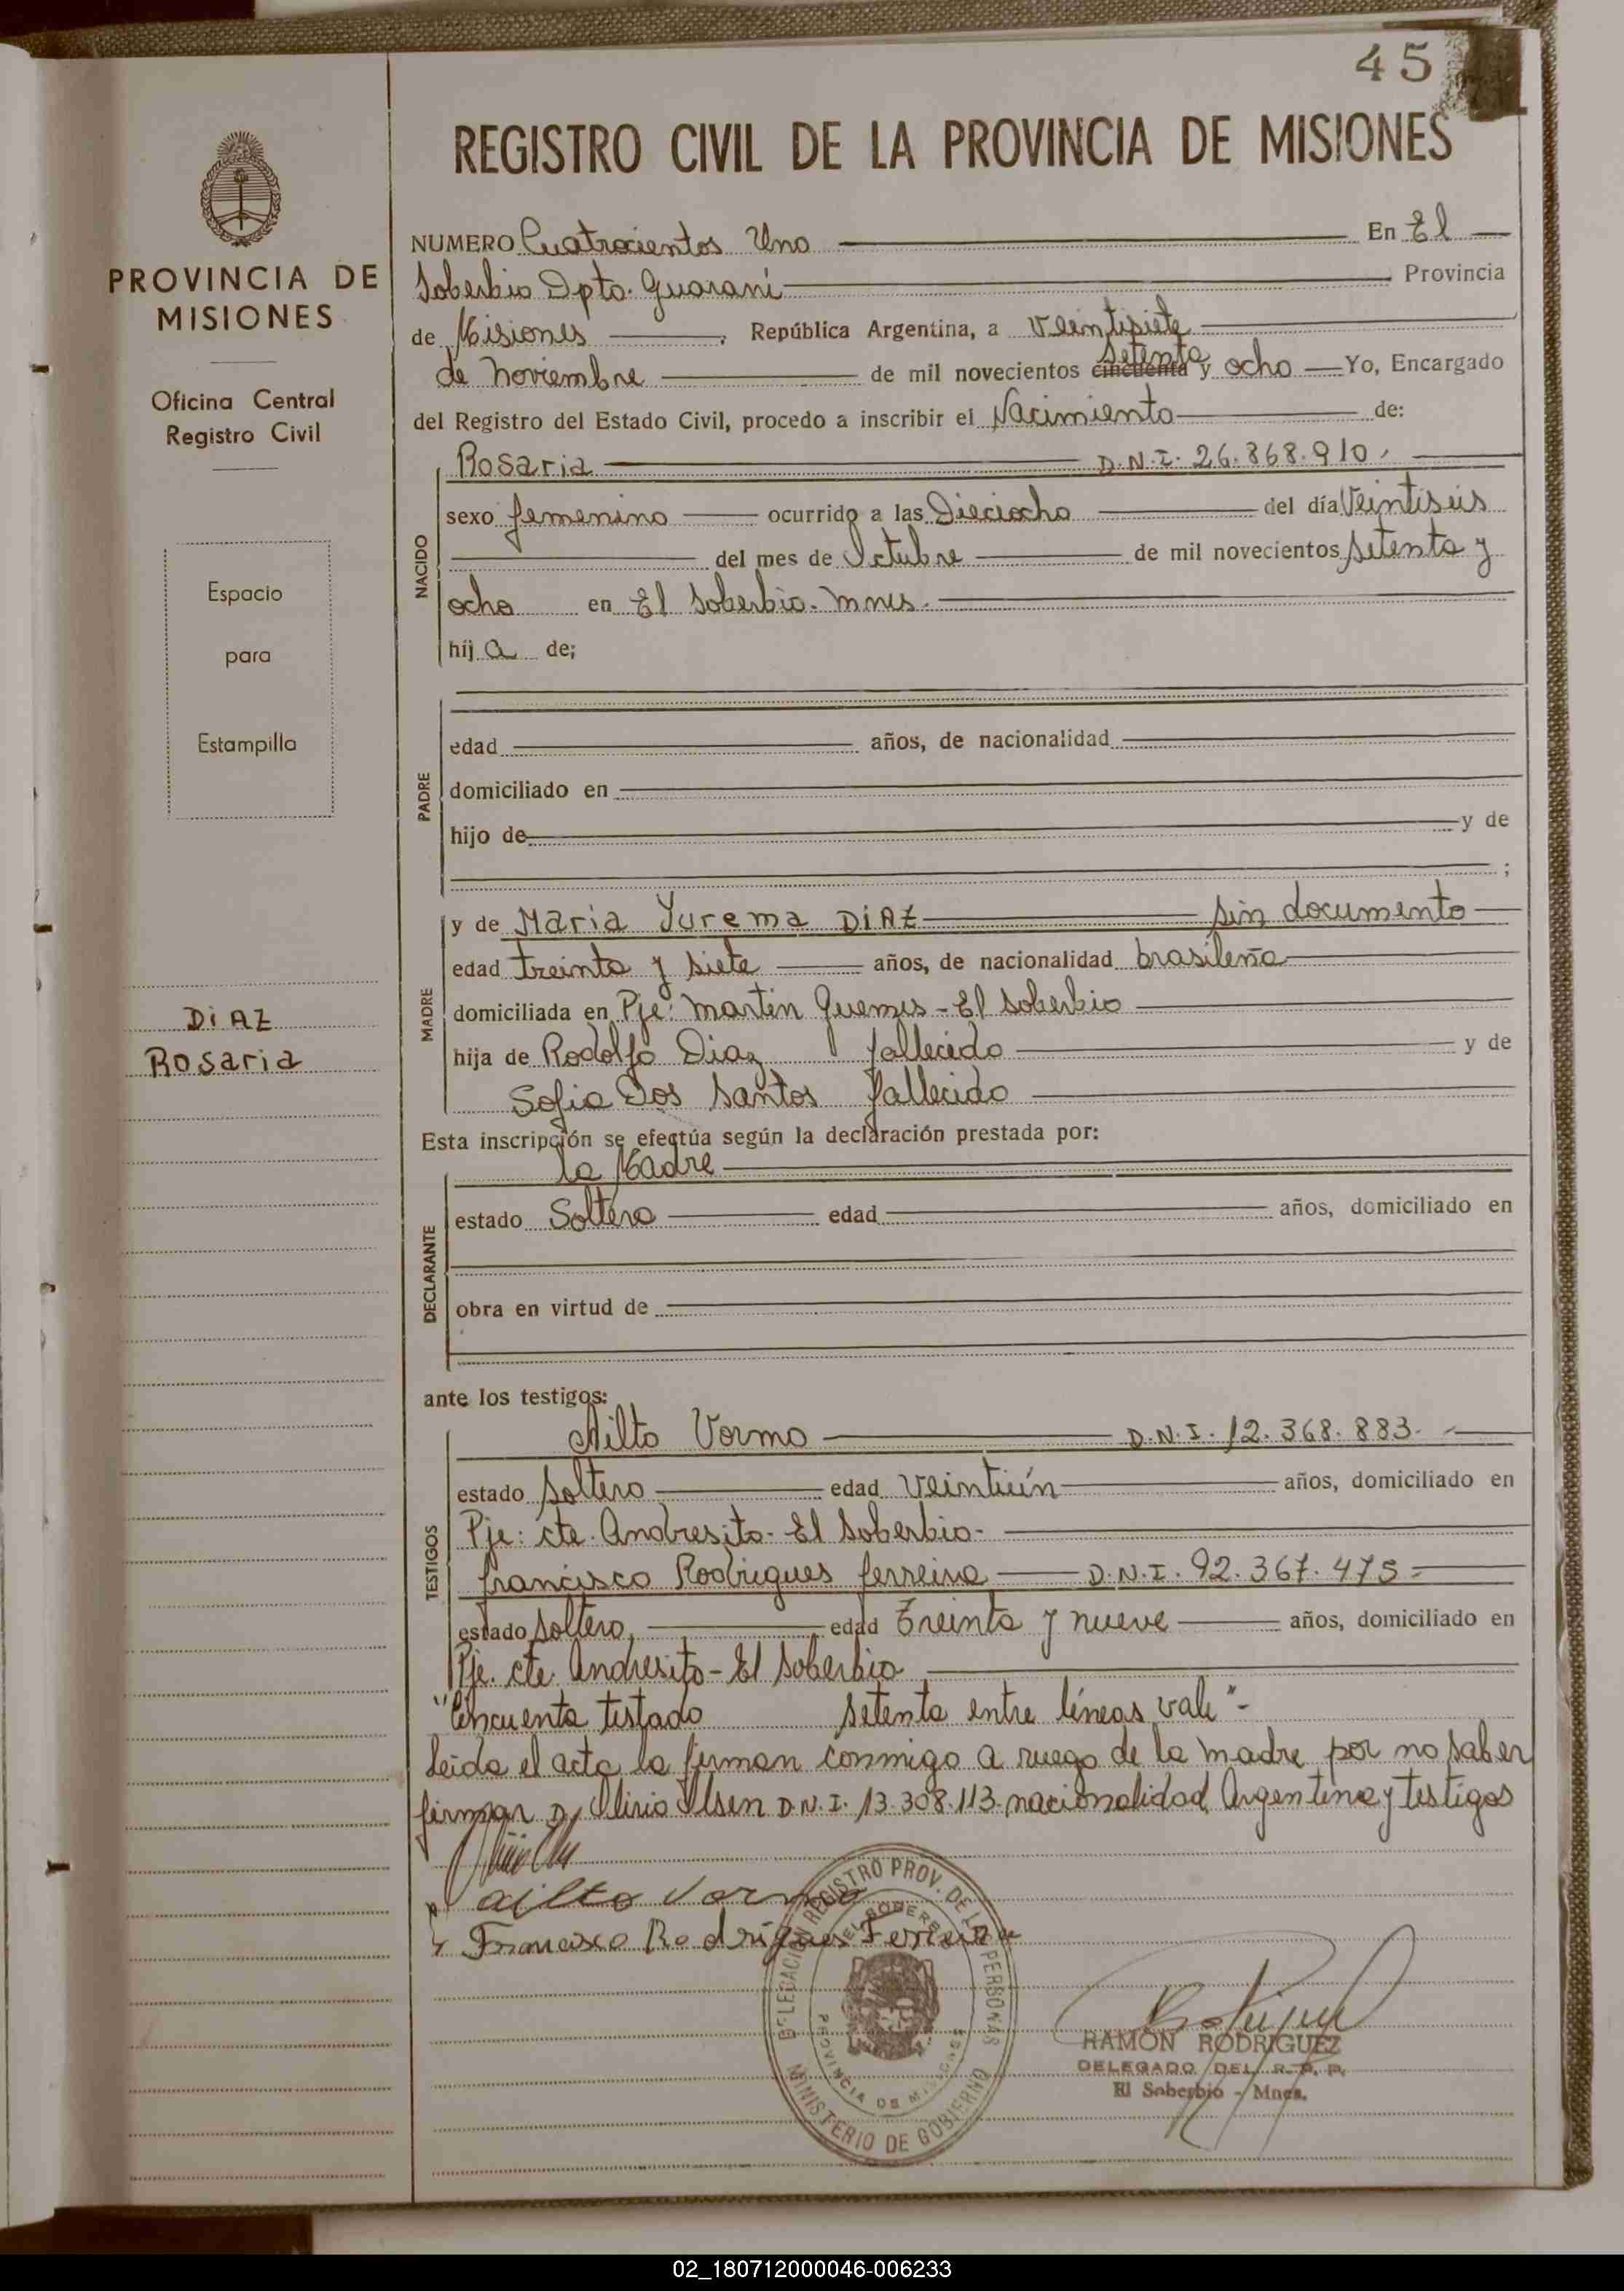 45
REGISTRO CIVIL DE LA PROVINCIA DE MISIONES
PROVINCIA DE
MISIONES
Oficina Central
Registro Civil
Espacio
para
Estampilla
DiAZ
Rosaria
NUMERO Cuatrocientos Uno En El
Soberbio Dpto. Guaraní Provincia
de Misiones, República Argentina, a Veintisiete
de Noviembre de mil novecientos cincuenta setenta y ocho Yo, Encargado
del Registro del Estado Civil, procedo a inscribir el Nacimiento de:
Rosaria D.N.I. 26.868.910
NACIDO
sexo femenino ocurrido a las Dieciocho del día Veintiseis
del mes de Octubre de mil novecientos setenta y
ocho en El Soberbio - Mnes.
hij a de;
PADRE
edad años, de nacionalidad
domiciliado en
hijo de y de
;
MADRE
y de Maria Yurema DiAZ sin documento
edad treinta y siete años, de nacionalidad brasileña
domiciliada en Pje: Martin Guemes - El Soberbio
hija de Rodolfo Diaz fallecido y de
Sofia Dos Santos fallecido
Esta inscripción se efectúa según la declaración prestada por:
la Madre
DECLARANTE
estado Soltera edad años, domiciliado en
obra en virtud de
ante los testigos:
TESTIGOS
Ailto Vorma D.N.I. 12.368.883.
estado soltero edad Veintiún años, domiciliado en
Pje: cte. Andresito - El Soberbio -
Francisco Rodrigues Ferreira D.N.I. 92.367.475
estado soltero, edad Treinta y nueve años, domiciliado en
Pje. cte. Andresito - El Soberbio
"Cincuenta testado setenta entre líneas vale" -
Leida el acta la firman conmigo a ruego de la madre por no saber
firmar D. Olirio Olsen D.N.I. 13.308.113 nacionalidad Argentina y testigos
ailto Vorma
Francisco Rodrigues Ferreira
DELEGACION REGISTRO PROV. DE LAS PERSONAS
EL SOBERBIO
PROVINCIA DE MISIONES
MINISTERIO DE GOBIERNO
RAMON RODRIGUEZ
DELEGADO DEL R. P. P.
El Soberbio - Mnes.
02_180712000046-006233